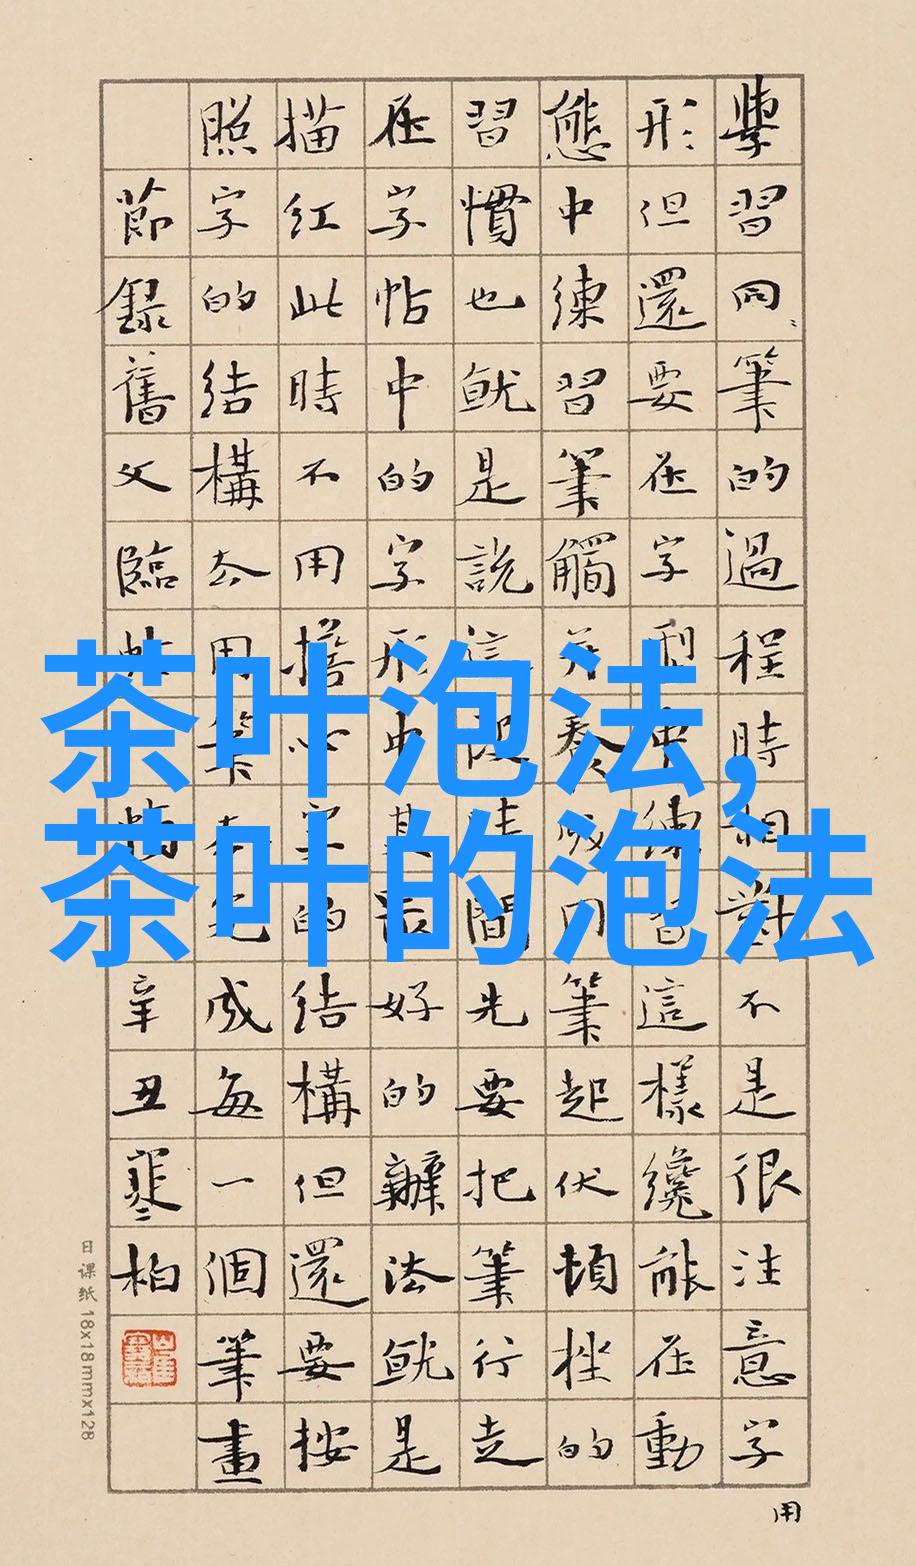 學習同筆的過程時相對不是很注意字
形但還要在字型中練習這樣纔能在動
態中練習筆觸奏筆起伏頓挫的
習慣也就是說這段時間先要把筆行走
在字帖中的字形中其好的辦法就是
描紅此時不用擔心字的結構但還要按
照字的結構去用筆去完成每一個筆畫
節錄舊文臨帖辛丑寒柏
用
日课纸 18x18mmx128
茶叶泡法,
茶叶的泡法